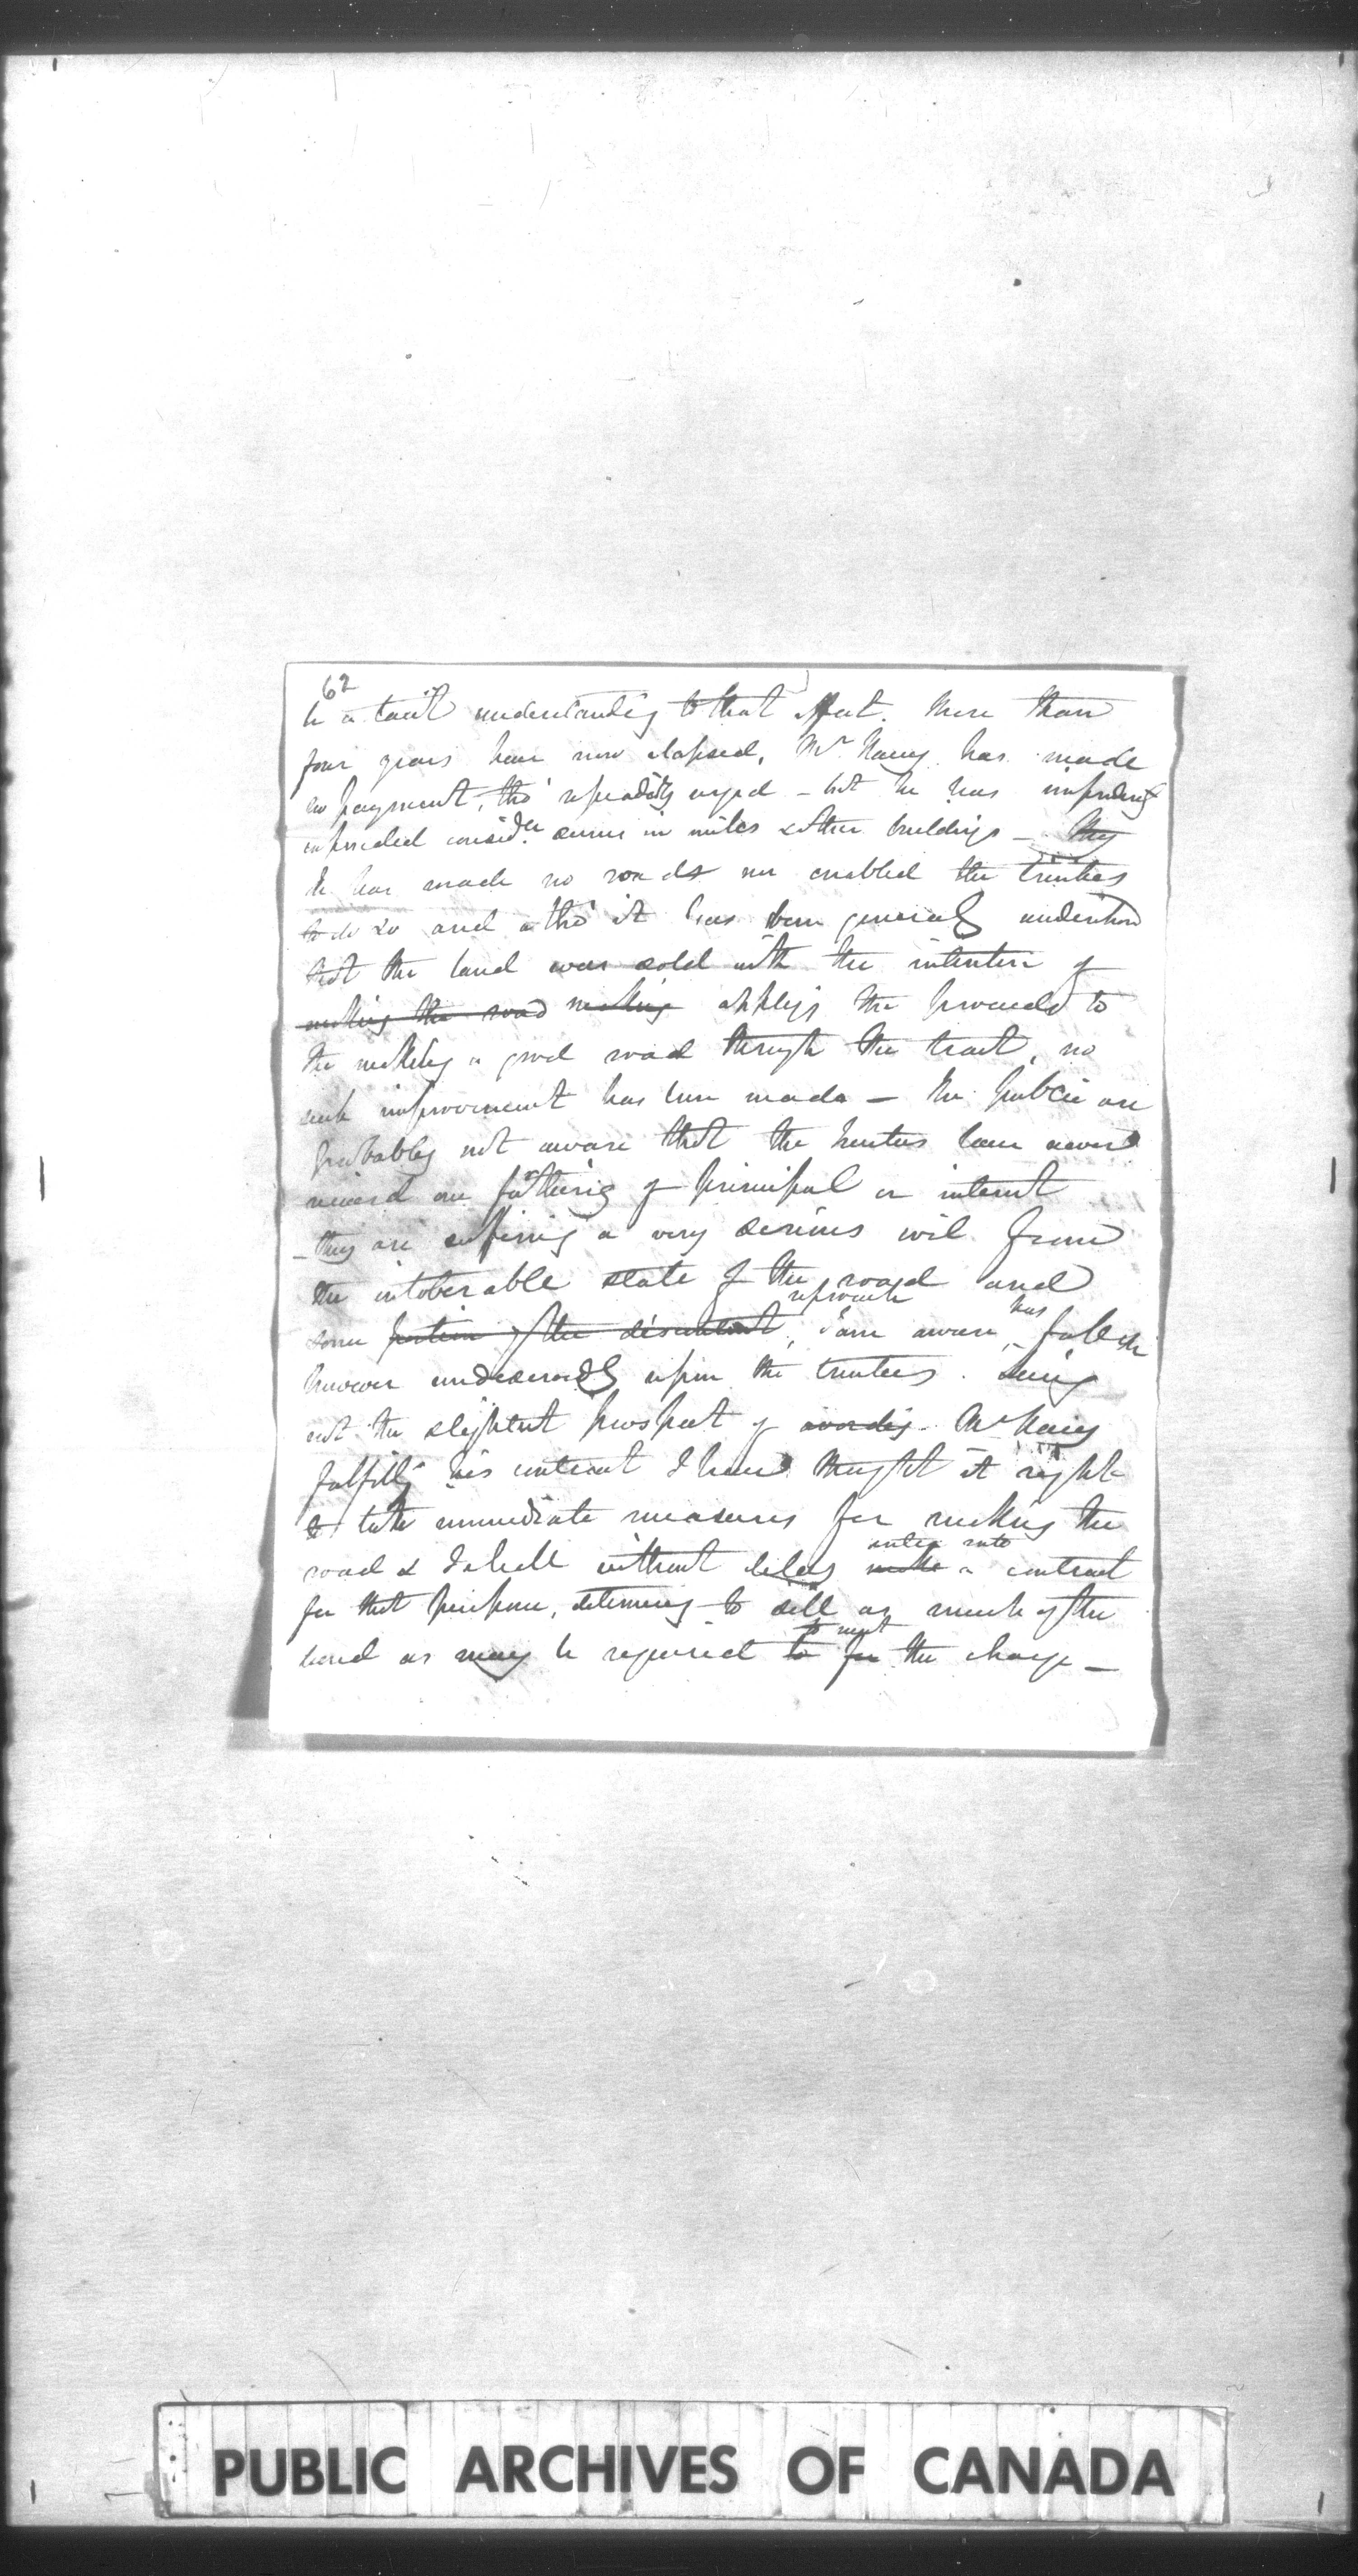 62
be a tacit understanding to that effect. More than
four years have now elapsed, Mr has made
no payment, tho' repeatedly urged - but he has imprudently
expended considble sums in mills & other buildings - They
He has made no roads nor enabled the trustees
to do so and altho' it has been generally understood
that the land was sold with the intention of
making the road making applyg the proceeds to
the making a good road through the tract, no
such improvement has been made - The public are
probably not aware that the trustees have never
received one farthing of principal or interest
- they are suffering a very serious evil from
the intolerable state of the road and
reproach has
some portion of the discontent, I am aware, fallen
however undeservedly upon the trustees. Seeing
not the slightest prospect of Mr
fulfillg his contract I have thought it right
to take immediate measures for making the
enter into
road & I shall without delay make a contract
for that purpose, determining to sell as much of the
to meet
land as may be required to for the charge -
PUBLIC ARCHIVES OF CANADA